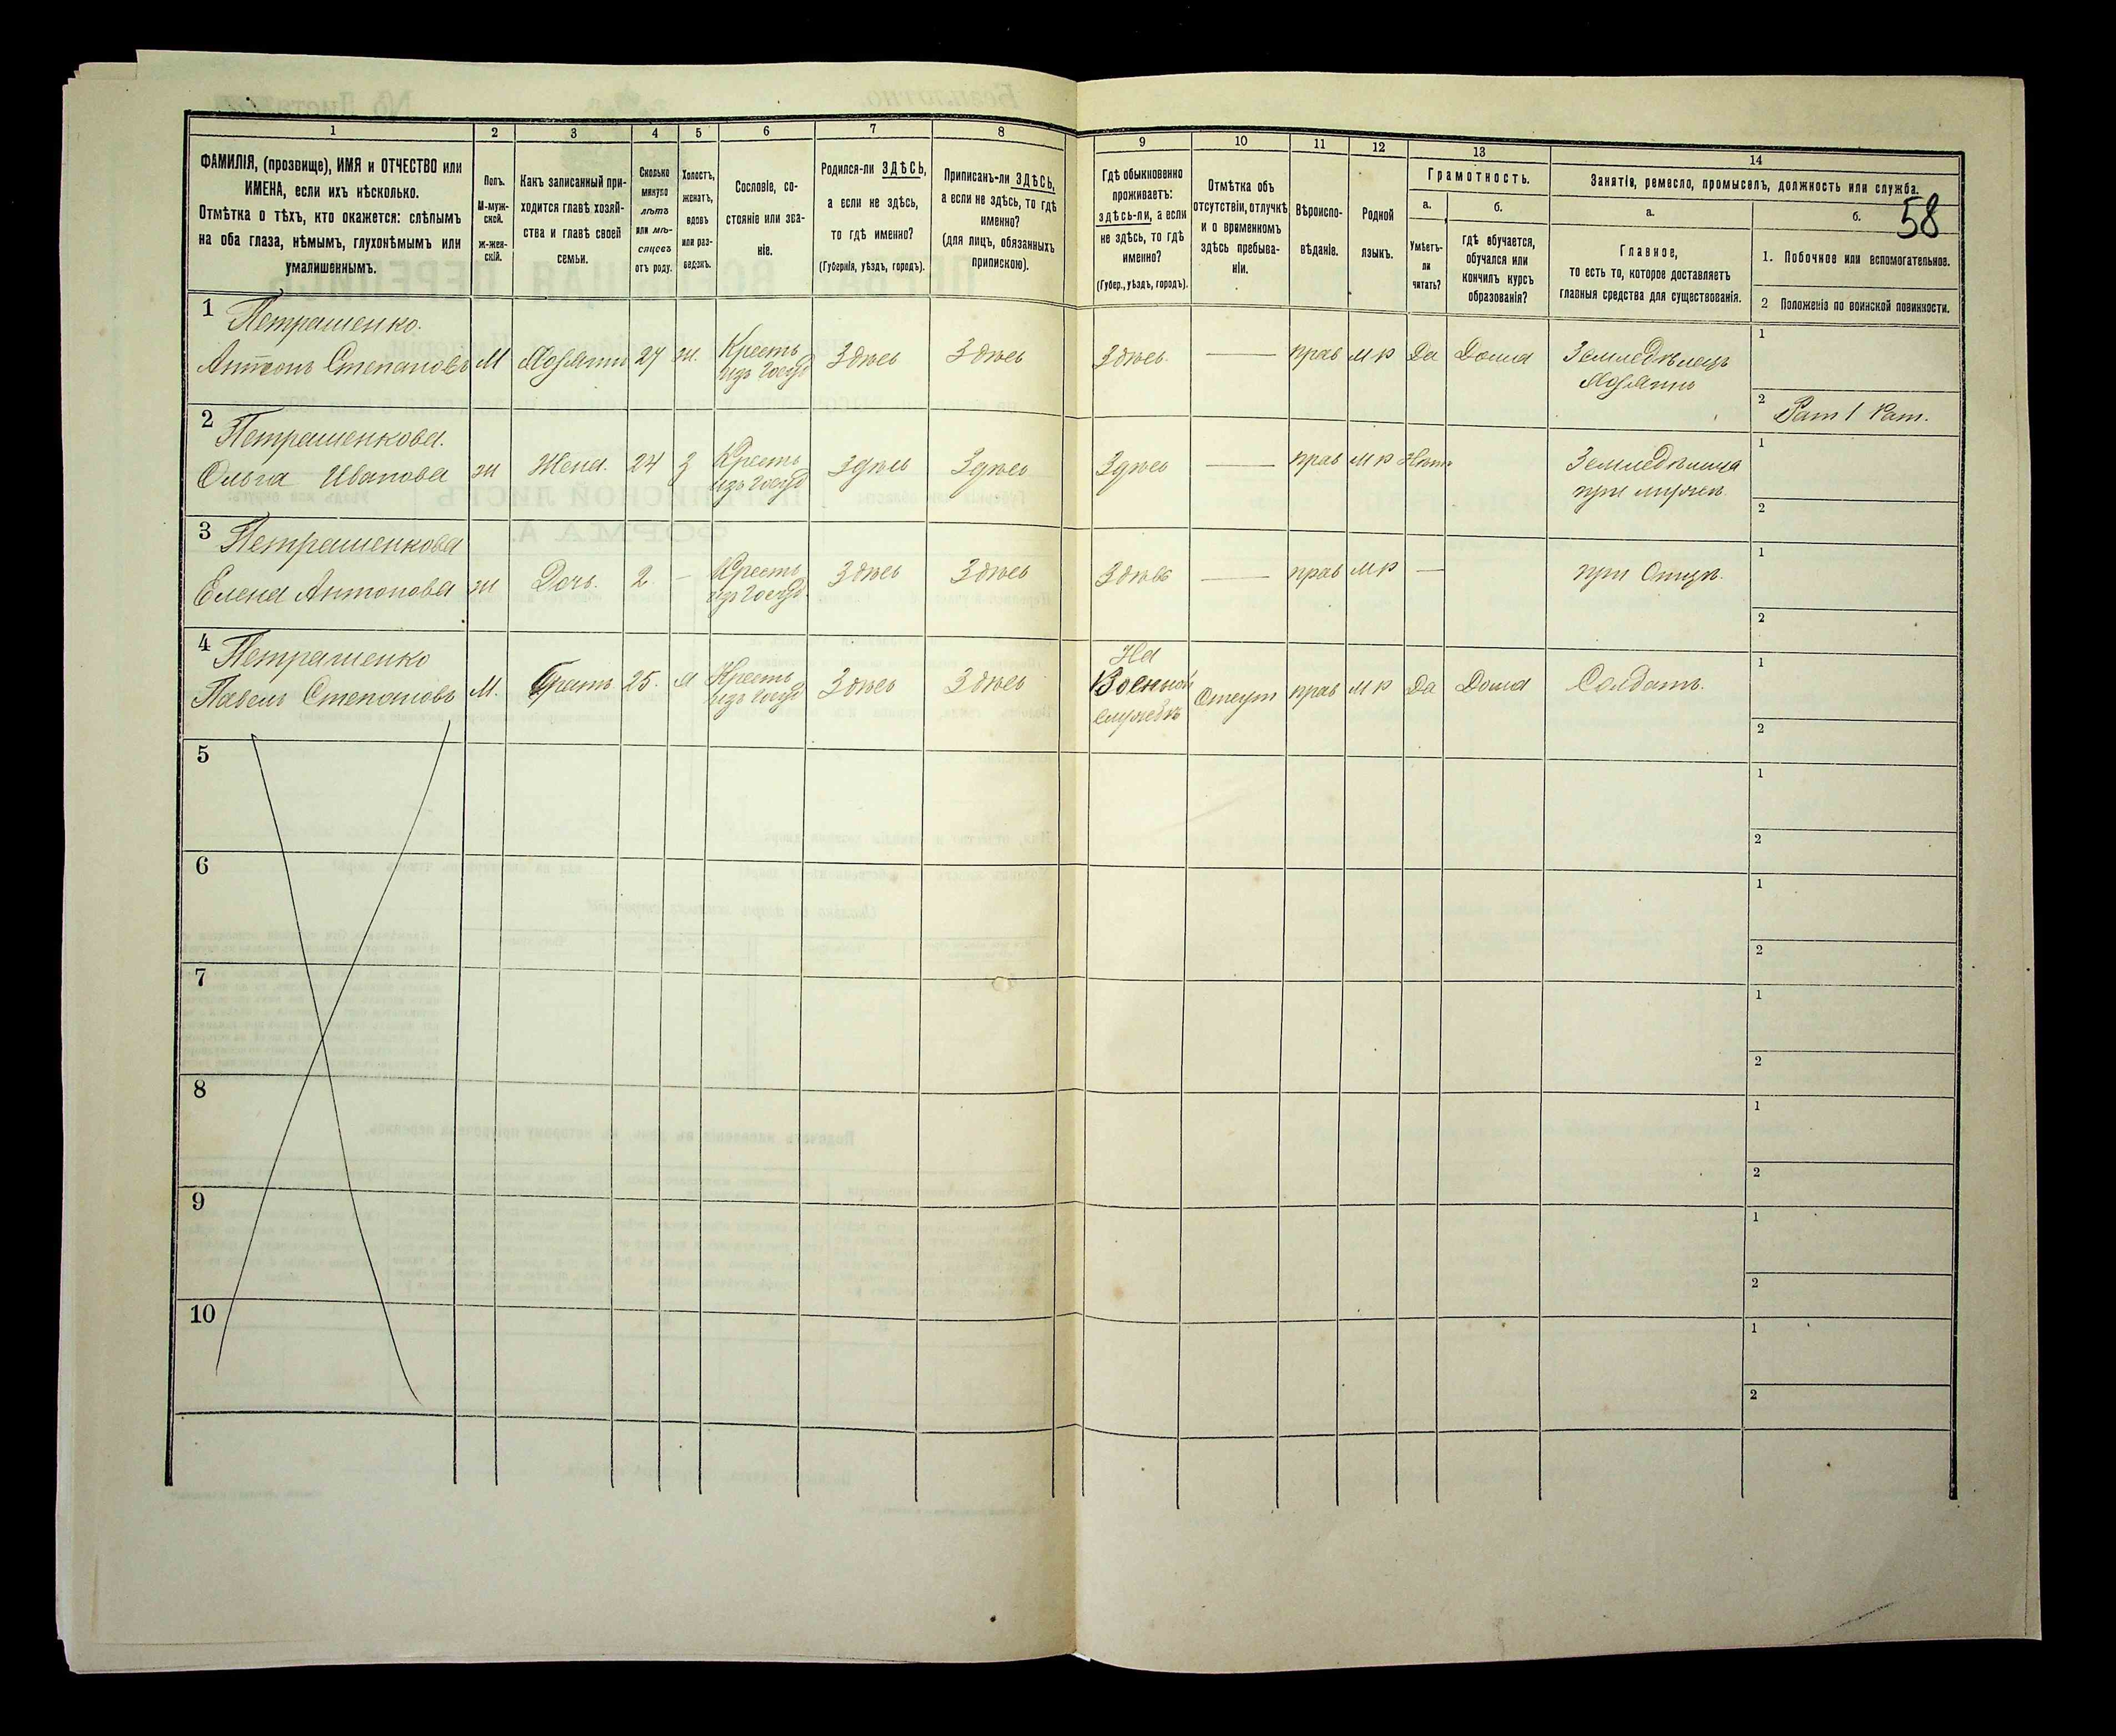 58
1 2 3 4 5 6 7 8 9 10 11 12 13 14
ФАМИЛІЯ, (прозвище), ИМЯ и ОТЧЕСТВО или
ИМЕНА, если ихъ нѣсколько.
Отмѣтка о тѣхъ, кто окажется: слѣпымъ
на оба глаза, нѣмымъ, глухонѣмымъ или
умалишеннымъ.
Полъ.
М-муж-
ской.
Ж-жен-
скій.
Какъ записанный при-
ходится главѣ хозяй-
ства и главѣ своей
семьи.
Сколько
минуло
лѣтъ
или мѣ-
сяцевъ
отъ роду.
Холостъ,
женатъ,
вдовъ
или раз-
веденъ.
Сословіе, со-
стояніе или зва-
ніе.
Родился-ли ЗДѢСЬ,
а если не здѣсь,
то гдѣ именно?
(Губернія, уѣздъ, городъ).
Приписанъ-ли ЗДѢСЬ,
а если не здѣсь, то гдѣ
именно?
(для лицъ, обязанныхъ
припискою).
Гдѣ обыкновенно
проживаетъ:
здѣсь-ли, а если
не здѣсь, то гдѣ
именно?
(Губер., уѣздъ, городъ).
Отмѣтка объ
отсутствіи, отлучкѣ
и о временномъ
здѣсь пребыва-
ніи.
Вѣроиспо-
вѣданіе.
Родной
языкъ.
Грамотность.
а.
Умѣетъ-
ли
читать?
б.
Гдѣ обучается,
обучался или
кончилъ курсъ
образованія?
Занятіе, ремесло, промыселъ, должность или служба.
а.
Главное,
то есть то, которое доставляетъ
главныя средства для существованія.
б.
1. Побочное или вспомогательное.
2 Положеніе по воинской повинности.
1 Петрашенко.
Антонъ Степановъ М Хозяинъ 27 ж. Крестьян изъ госуд Здѣсь Здѣсь Здѣсь — прав м р Да Дома Земледѣлецъ
Хозяинъ
1
2 Рат 1 Рат.
2 Петрашенкова.
Ольга Иванова ж Жена. 24 З Крестьян изъ госуд Здѣсь Здѣсь Здѣсь — прав м р Нѣтъ Земледѣлица
при мужѣ
1
2
3 Петрашенкова
Елена Антонова ж Дочь. 2 — Крестьян изъ госуд Здѣсь Здѣсь Здѣсь — прав м р — при Отцѣ.
1
2
4 Петрашенко
Павелъ Степановъ М. Братъ 25. Крестьян изъ госуд Здѣсь Здѣсь На
Военной
службѣ Отсут прав м р Да Дома Солдатъ.
1
2
5
1
2
6
1
2
7
1
2
8
1
2
9
1
2
10
1
2